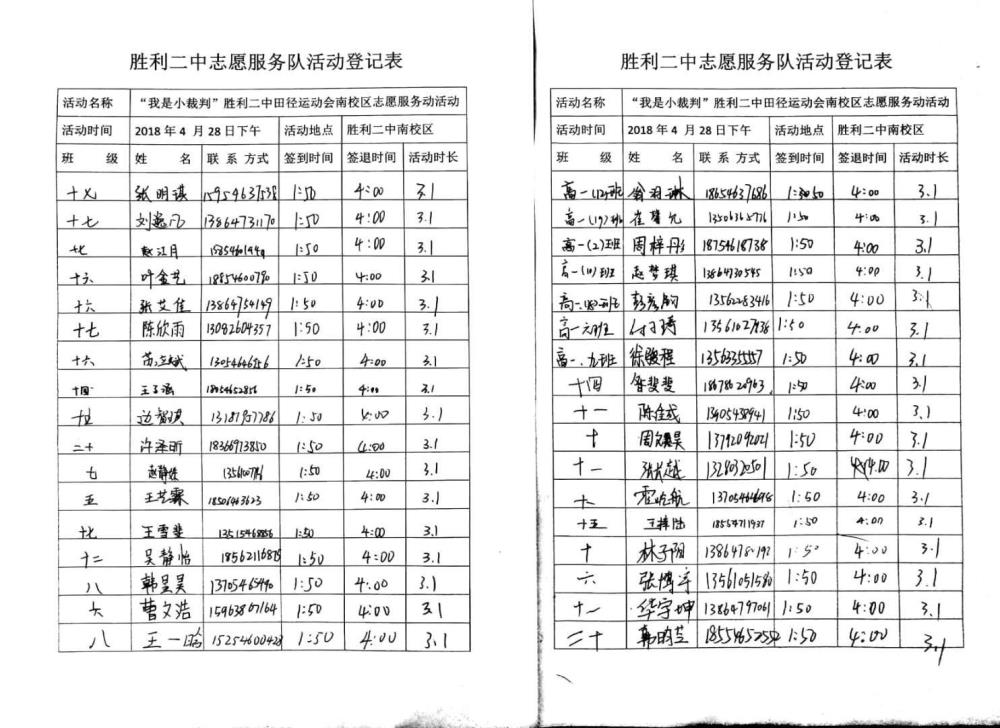 胜利二中志愿服务队活动登记表
活动名称 “我是小裁判”胜利二中田径运动会南校区志愿服务动活动
活动时间 2018年4月28日下午 活动地点 胜利二中南校区
班级 姓名 联系方式 签到时间 签退时间 活动时长
十七 张明琪 15954637538 1:50 4:00 3.1
十七 刘逸凡 13864731170 1:50 4:00 3.1
十七 赵江月 1:50 4:00 3.1
十六 叶金艺 18854600790 1:50 4:00 3.1
十六 张艾佳 13864754149 1:50 4:00 3.1
十七 陈欣雨 13092604357 1:50 4:00 3.1
十六 13054646256 1:50 4:00 3.1
十四 王子涵 18054652856 1:50 4:00 3.1
十五 边智琪 1:50 4:00 3.1
二十 许泽昕 18366913850 1:50 4:00 3.1
七 赵静 1:50 4:00 3.1
五 王艺霖 1:50 4:00 3.1
十七 王雪斐 13515468856 1:50 4:00 3.1
十二 吴静怡 1:50 4:00 3.1
八 韩昊昊 13705465440 1:50 4:00 3.1
六 曹文浩 15963867164 1:50 4:00 3.1
八 王一 15254600428 1:50 4:00 3.1
胜利二中志愿服务队活动登记表
活动名称 “我是小裁判”胜利二中田径运动会南校区志愿服务动活动
活动时间 2018年4月28日下午 活动地点 胜利二中南校区
班级 姓名 联系方式 签到时间 签退时间 活动时长
高一(12)班 翁羽琳 18654637686 1:50 4:00 3.1
高一(19)班 1:50 4:00 3.1
高一(2)班 周梓彤 18754618738 1:50 4:00 3.1
高一(11)班 赵梦琪 13864730545 1:50 4:00 3.1
13562283416 1:50 4:00 3.1
高一六班 1:50 4:00 3.1
高一.九班 徐 1:50 4:00 3.1
十四 鲁斐斐 18678620963 1:50 4:00 3.1
十一 陈佳 13405438941 1:50 4:00 3.1
十 周 13792092021 1:50 4:00 3.1
十一 张 13280320501 1:50 4:00 3.1
航 1:50 4:00 3.1
十五 王梓 18554711937 1:50 4:00 3.1
十 林子阳 4:00 3.1
六 张博宇 13561051580 1:50 4:00 3.1
十一 华宇坤 13864797061 1:50 4:00 3.1
二十 韩昀芸 1:50 4:00 3.1